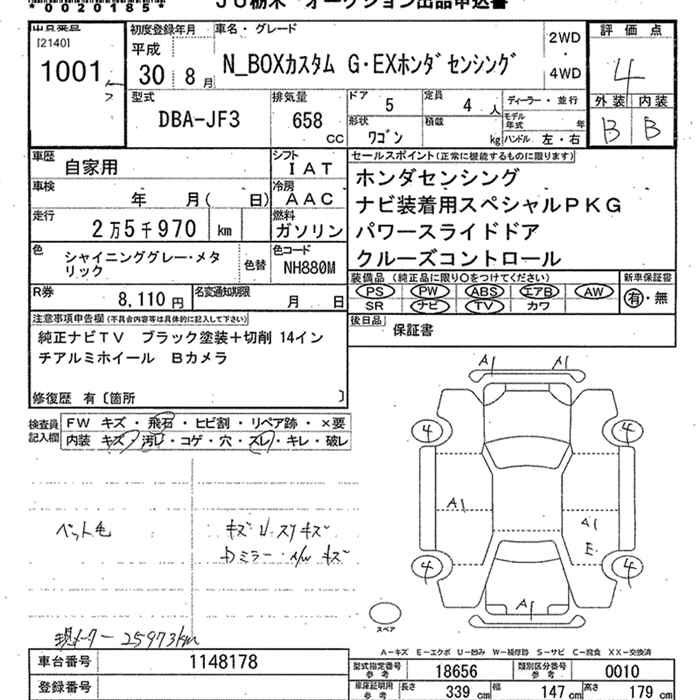 *0020185*
JU栃木 オークション出品申込書
[2140]
1001
初度登録年月
平成
30年 8月
車名・グレード
N_BOXカスタム G・EXホンダセンシング
2WD
・
4WD
評価点
4
外装 内装
B B
型式
DBA-JF3
排気量
658 cc
ドア 5
定員 4人
ディーラー・並行
形状
ワゴン
積載 kg
モデル年式 年
ハンドル 左・右
車歴 自家用
シフト IAT
車検 年 月( 日)
冷房 AAC
走行 2万5千970 km
燃料 ガソリン
色 シャイニンググレー・メタリック
色替
色コード NH880M
R券 8,110円
名変通知期限 月 日
セールスポイント(正常に機能するものに限ります)
ホンダセンシング
ナビ装着用スペシャルPKG
パワースライドドア
クルーズコントロール
装備品(純正品に限り○をつけてください)
PS PW ABS エアB AW
SR ナビ TV カワ
新車保証書
有・無
後日品 保証書
注意事項申告欄(不具合内容等は具体的に記入して下さい)
純正ナビTV ブラック塗装+切削 14イン
チアルミホイール Bカメラ
修復歴 有〔箇所 〕
検査員記入欄
FW キズ・飛石・ヒビ割・リペア跡・×要
内装 キズ・汚レ・コゲ・穴・スレ・キレ・破レ
ペット毛
キズ U.スリキズ
Dミラー・
現メーター 25973km
A1 A1
4 4
A1 A1
E
4 4
A1
スペア
A-キズ E-エクボ U-凹み W-補修跡 S-サビ C-腐食 XX-交換済
車台番号 1148178
登録番号
型式指定番号 参考 18656
類別区分番号 参考 0010
車庫証明用 参考 長さ 339 cm 幅 147 cm 高さ 179 cm